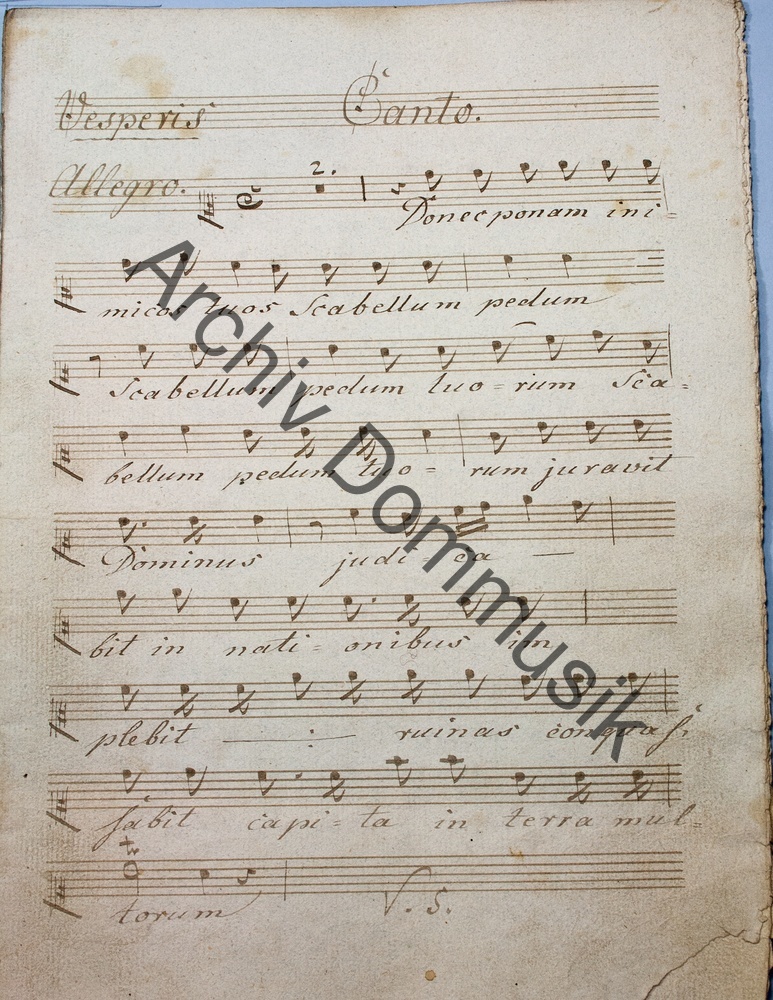 Vesperis Canto.
Allegro. 2.
Donec ponam ini=
micos tuos Scabellum pedum
Scabellum pedum tuo=rum Sca=
bellum pedum tuo= rum juravit
Dominus judi=ca —
bit in nati=onibus im
plebit — : — ruinas conquas
sabit capi=ta in terra mul=
torum V. S.
Archiv Dommusik